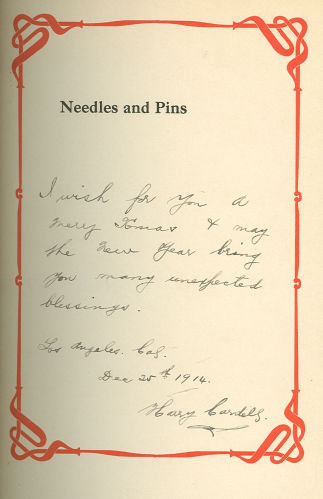 Needles and Pins
I wish for you a
Merry Xmas & may
the New Year bring
you many unexpected
blessings.
Los Angeles. Cal.
Dec 25th 1914.
Harry